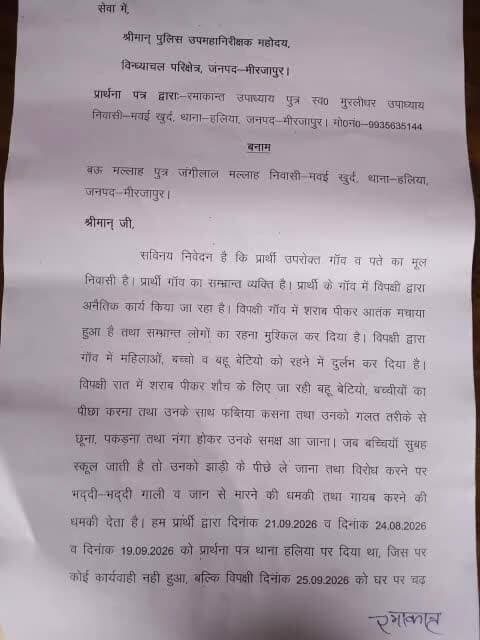 सेवा में,
श्रीमान् पुलिस उपमहानिरीक्षक महोदय,
विन्ध्याचल परिक्षेत्र, जनपद–मीरजापुर।
प्रार्थना पत्र द्वाराः–रमाकान्त उपाध्याय पुत्र स्व0 मुरलीधर उपाध्याय
निवासी–मवई खुर्द, थाना–हलिया, जनपद–मीरजापुर। मो0नं0–9935635144
बनाम
बऊ मल्लाह पुत्र जंगीलाल मल्लाह निवासी–मवई खुर्द, थाना–हलिया,
जनपद–मीरजापुर।
श्रीमान् जी,
सविनय निवेदन है कि प्रार्थी उपरोक्त गॉव व पते का मूल
निवासी है। प्रार्थी गॉव का सम्भ्रान्त व्यक्ति है। प्रार्थी के गॉव में विपक्षी द्वारा
अनैतिक कार्य किया जा रहा है। विपक्षी गॉव में शराब पीकर आतंक मचाया
हुआ है तथा सम्भ्रान्त लोगों का रहना मुश्किल कर दिया है। विपक्षी द्वारा
गॉव में महिलाओं, बच्चो व बहू बेटियो को रहने में दुर्लन कर दिया है।
विपक्षी रात में शराब पीकर शौच के लिए जा रही बहू बेटियो, बच्चीयों का
पीछा करना तथा उनके साथ फब्तिया कसना तथा उनको गलत तरीके से
छूना, पकड़ना तथा नंगा होकर उनके समक्ष आ जाना। जब बच्चियॉ सुबह
स्कूल जाती है तो उनको झाड़ी के पीछे ले जाना तथा विरोध करने पर
भद्दी–भद्दी गाली व जान से मारने की धमकी तथा गायब करने की
धमकी देता है। हम प्रार्थी द्वारा दिनांक 21.09.2026 व दिनांक 24.08.2026
व दिनांक 19.09.2026 को प्रार्थना पत्र थाना हलिया पर दिया था, जिस पर
कोई कार्यवाही नही हुआ, बल्कि विपक्षी दिनांक 25.09.2026 को घर पर चढ़
रमाकान्त